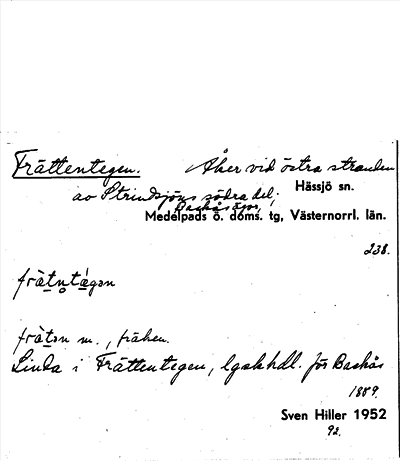 Frättentegen. Åker vid östra stranden
av Strindsjöns södra del; Hässjö sn.
Baskås ägor.
Medelpads ö. doms. tg, Västernorrl. län.
238.
frät̲n̥tá̲gən
frätən m., fräken.
Linda i Frättentegen, lgakhdl. för Baskås
1889.
Sven Hiller 1952
92.